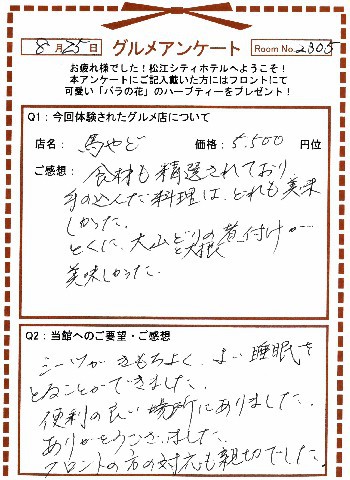 8月25日 グルメアンケート Room No. 2305
お疲れ様でした!松江シティホテルへようこそ!
本アンケートにご記入戴いた方にはフロントにて
可愛い「バラの花」のハーブティーをプレゼント!
Q1:今回体験されたグルメ店について
店名: 馬やど 価格: 5,500 円位
ご感想: 食材も精選されており
手の込んだ料理は、どれも美味
しかった。
とくに、大山どりの煮付けが…
と大根
美味しかった。
Q2:当館へのご要望・ご感想
シーツがきもちよく、よい睡眠を
とることができました。
便利の良い場所にありました。
ありがとうございました。
フロントの方の対応も親切でした。